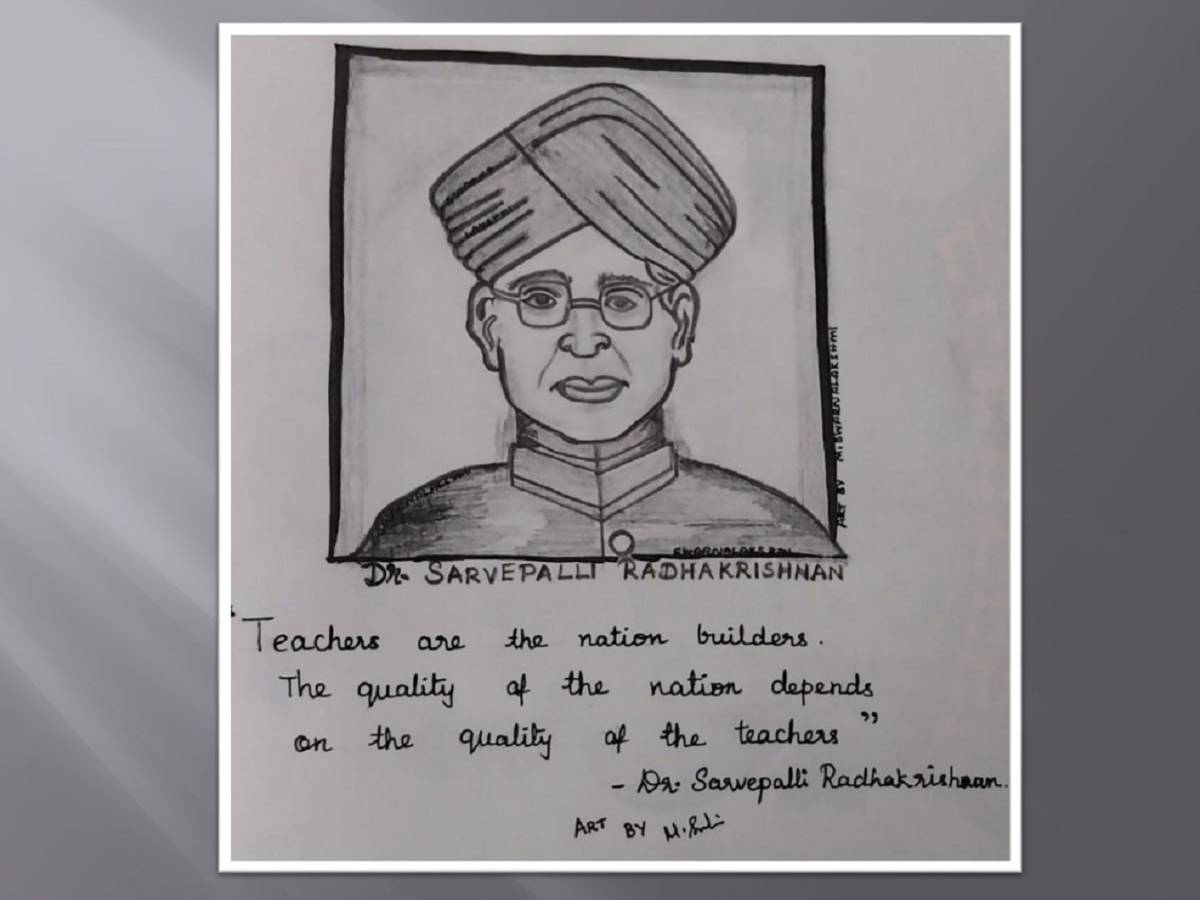 ART BY M.SWARNALAKSHMI
SWARNALAKSHMI
Dr. SARVEPALLI RADHAKRISHNAN
“Teachers are the nation builders.
The quality of the nation depends
on the quality of the teachers”
- Dr. Sarvepalli Radhakrishnan.
ART BY